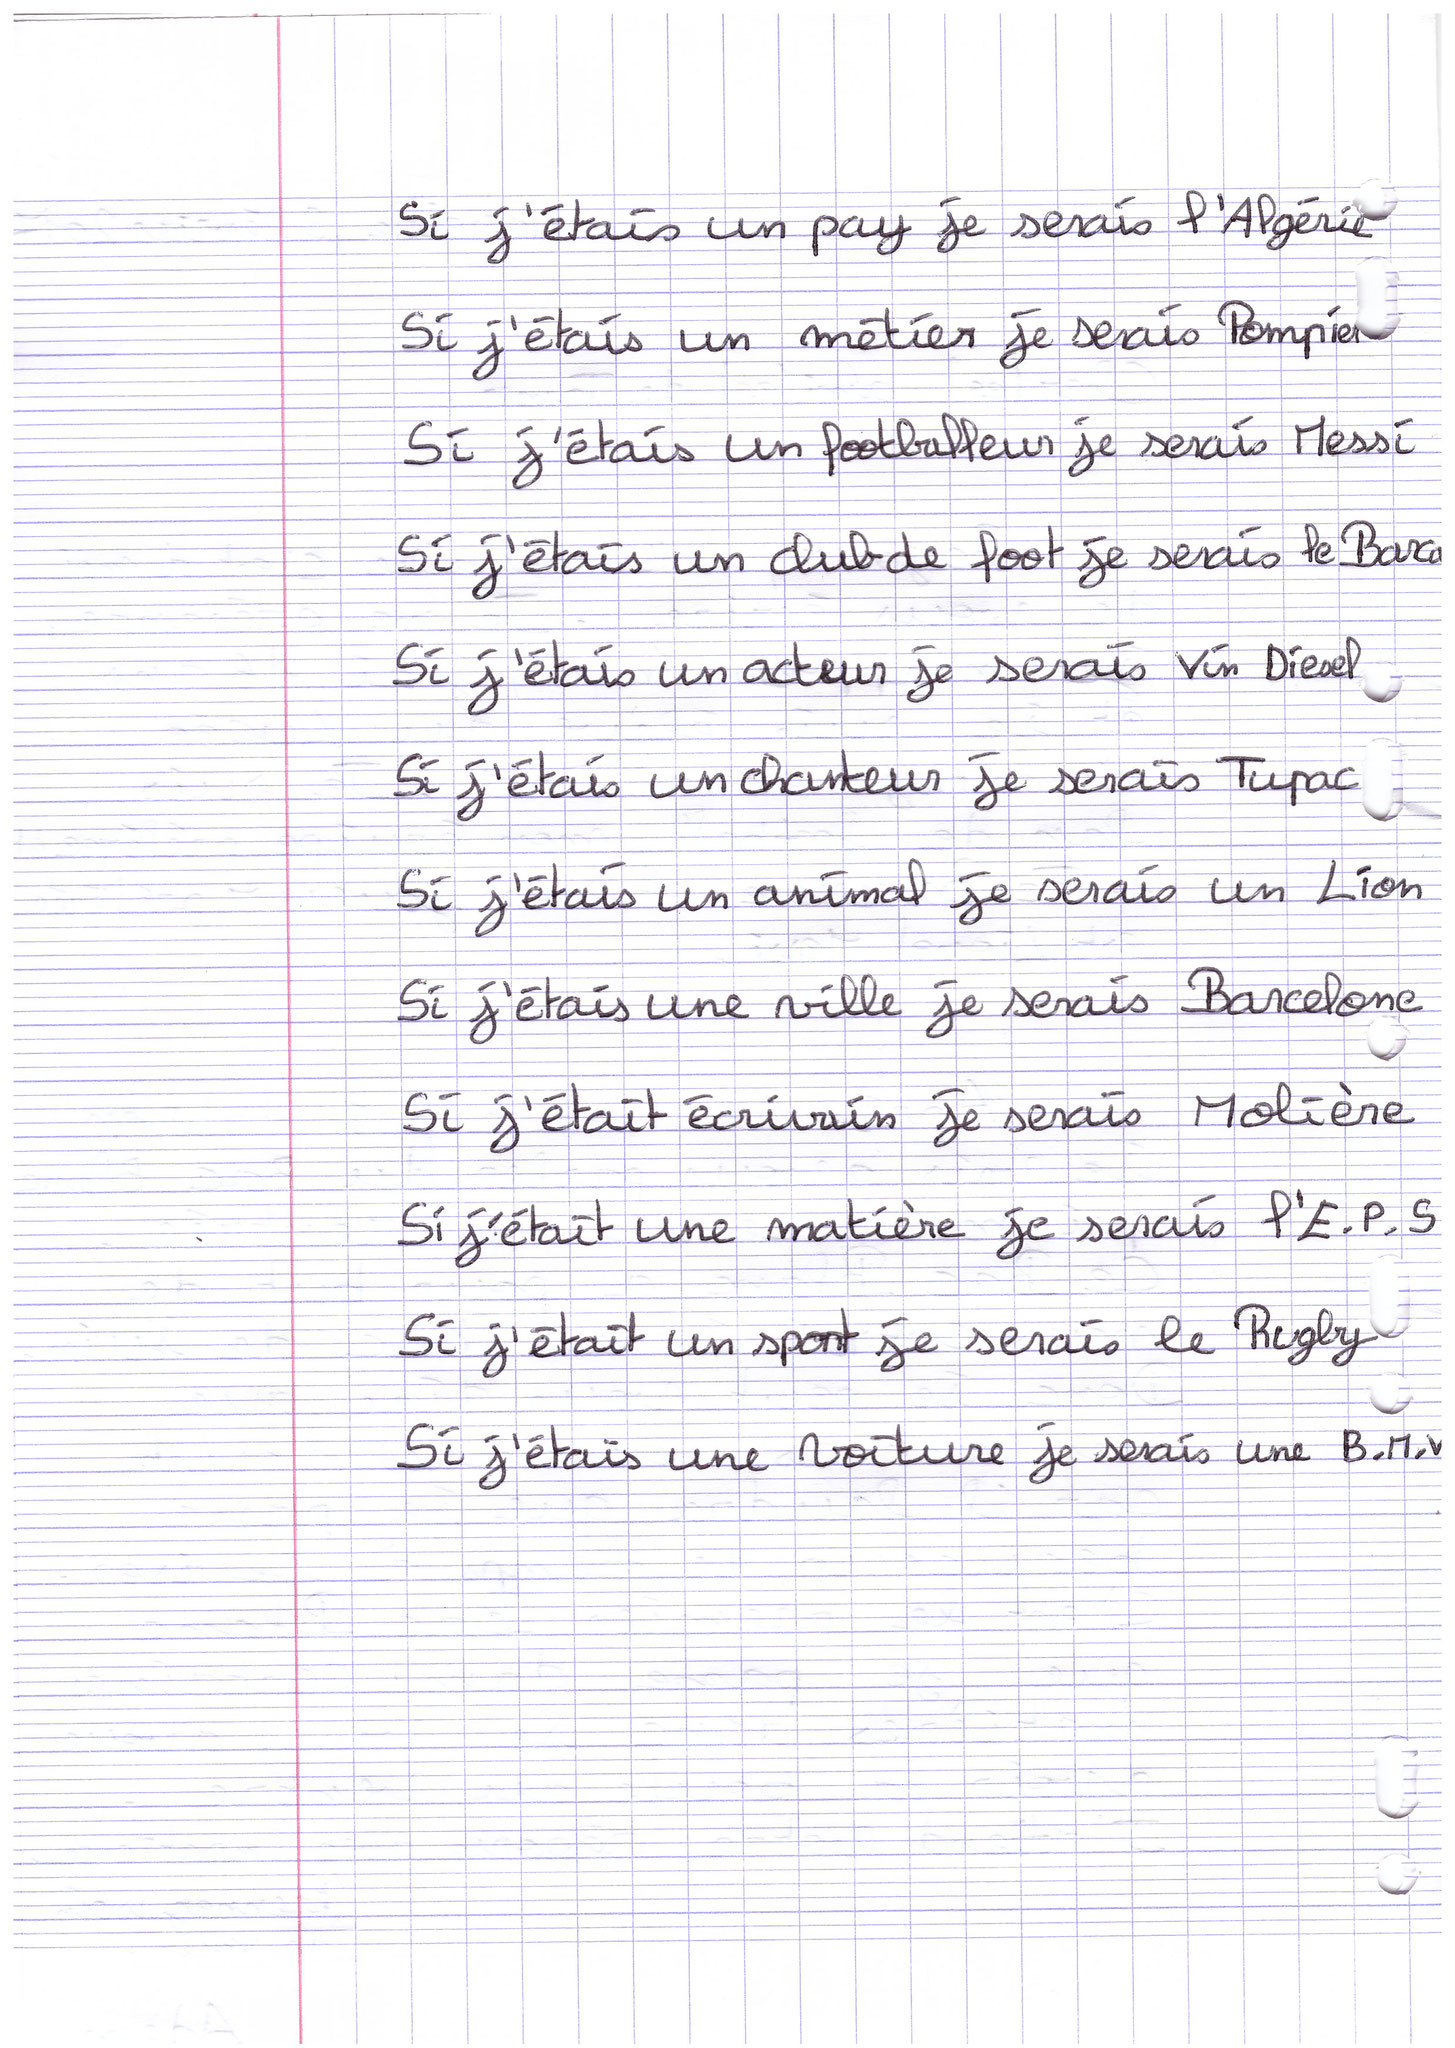 Si j'étais un pay je serais l'Algérie
Si j'étais un métier je serais Pompier
Si j'étais un footballeur je serais Messi
Si j'étais un club de foot je serais le Barca
Si j'étais un acteur je serais Vin Diesel
Si j'étais un chanteur je serais Tupac
Si j'étais un animal je serais un Lion
Si j'étais une ville je serais Barcelone
Si j'était écrivain je serais Molière
Si j'était une matière je serais l'E.P.S
Si j'était un sport je serais le Rugby
Si j'étais une voiture je serais une B.M.W